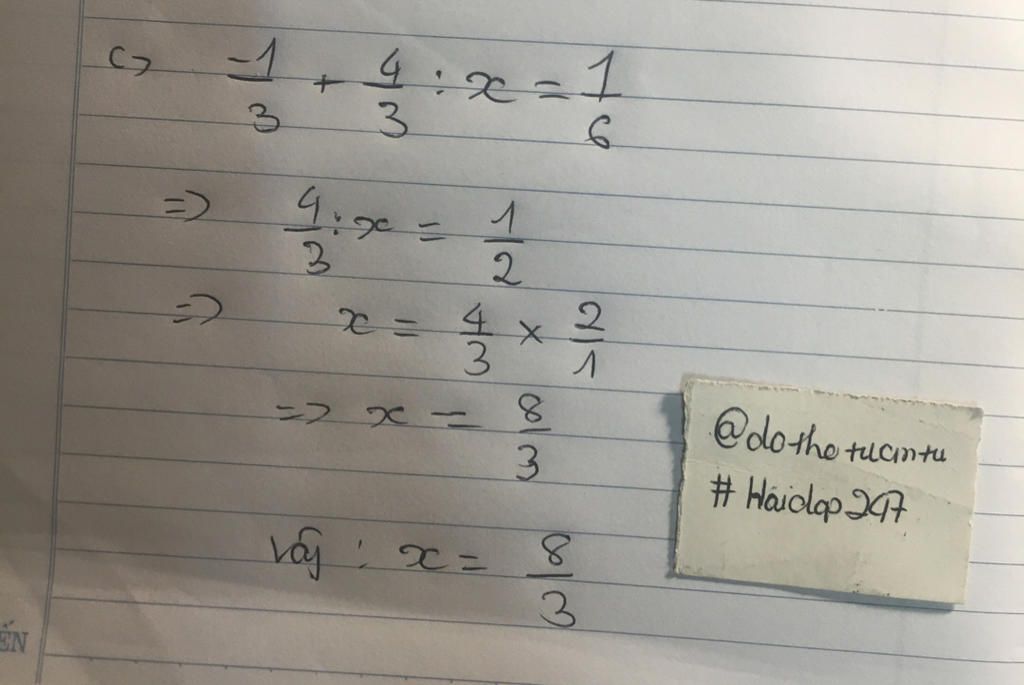 c> -1/3 + 4/3 : x = 1/6
=> 4/3 : x = 1/2
=> x = 4/3 × 2/1
=> x = 8/3
vậy : x = 8/3
@dothetuantu
#Hoidap247
ẾN